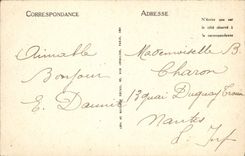 CORRESPONDANCE
ADRESSE
N'écrire que sur
le côté réservé à
la correspondance
Aimable
Bonjour
E. Daunit
Mademoiselle B
Charon
13 quai Duguay Trouin
Nantes
L. Inf